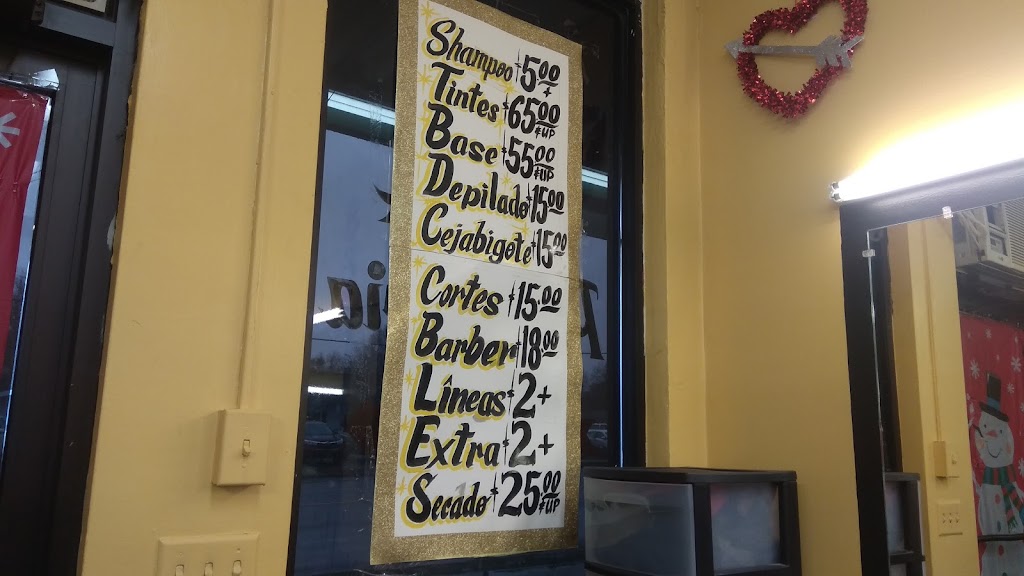 Shampoo $5.00 +
Tintes $65.00 & UP
Base $55.00 & UP
Depilado $15.00
Cejabigote $15.00
Cortes $15.00
Barber $18.00
Líneas $2+
Extra $2+
Secado $25.00 & UP